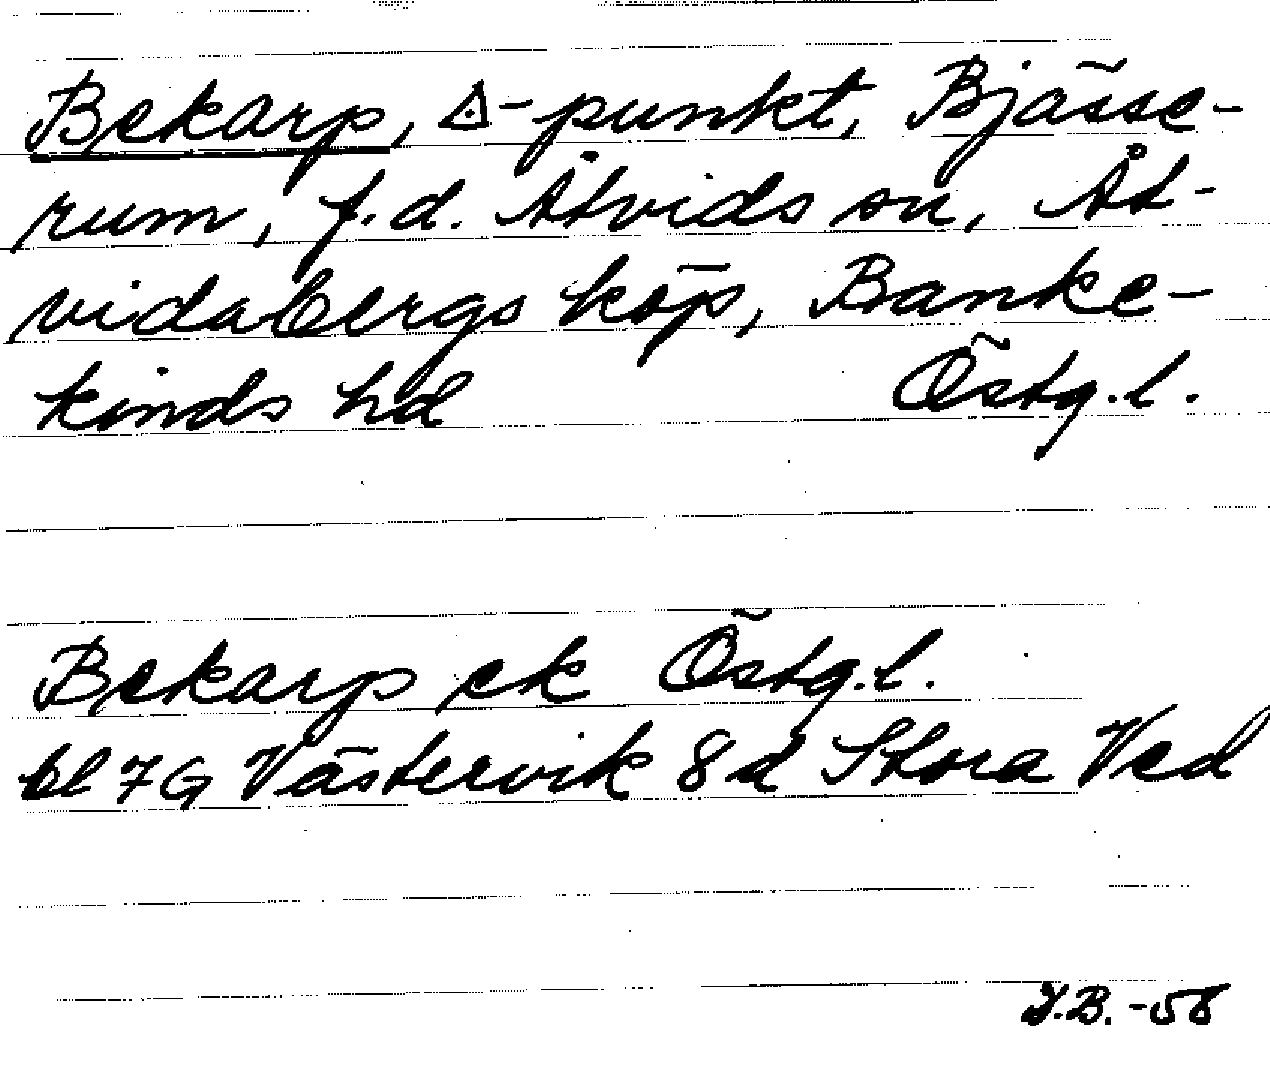 Bekarp, △-punkt, Bjässe-
rum, f.d. Åtvids sn, Åt-
vidabergs köp, Banke-
kinds hd Östg.l.
Bekarp ek Östg.l.
bl 7G Västervik 8d Stora Ved
J.B. -58